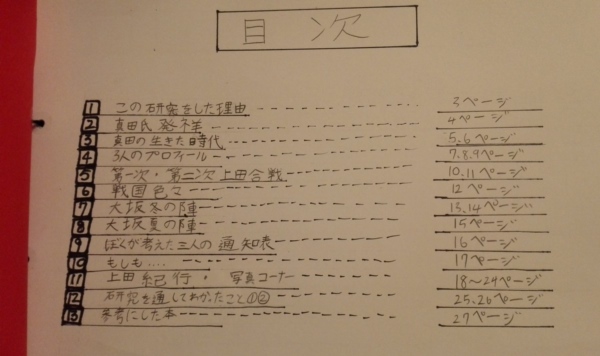 目次
1 この研究をした理由 3ページ
2 真田氏発祥 4ページ
3 真田の生きた時代 5.6ページ
4 3人のプロフィール 7.8.9ページ
5 第一次・第二次上田合戦 10.11ページ
6 戦国色々 12ページ
7 大坂冬の陣 13.14ページ
8 大坂夏の陣 15ページ
9 ぼくが考えた三人の通知表 16ページ
10 もしも.... 17ページ
11 上田紀行・写真コーナー 18〜24ページ
12 研究を通してわかったこと①② 25.26ページ
13 参考にした本 27ページ